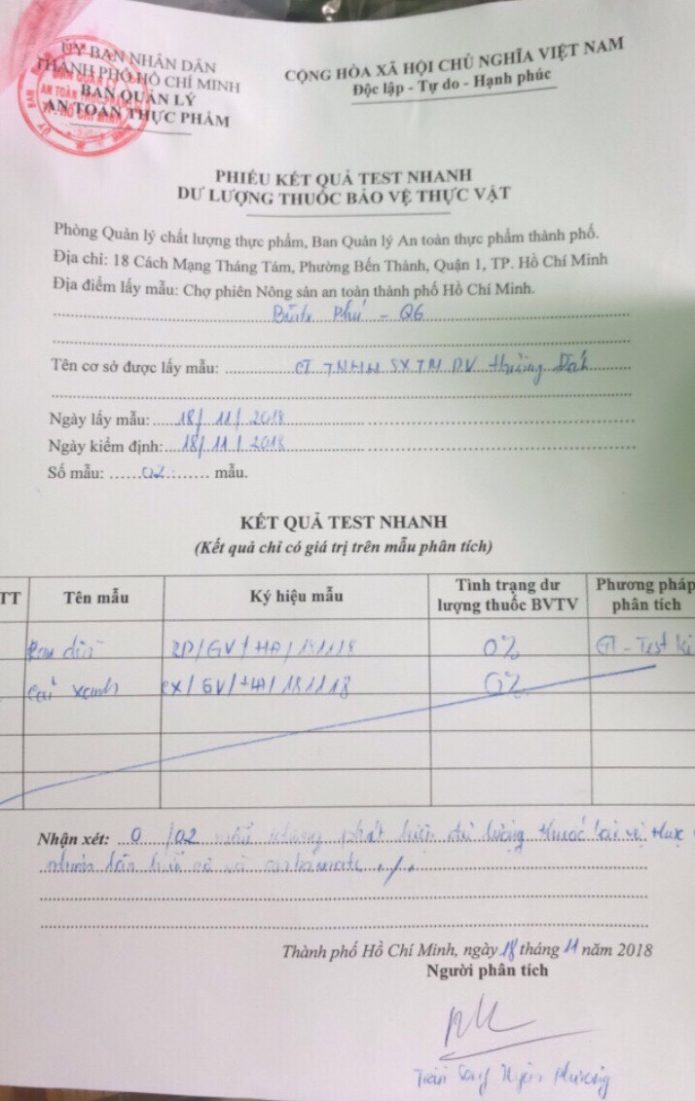 ỦY BAN NHÂN DÂN
THÀNH PHỐ HỒ CHÍ MINH
BAN QUẢN LÝ
AN TOÀN THỰC PHẨM
CỘNG HÒA XÃ HỘI CHỦ NGHĨA VIỆT NAM
Độc lập - Tự do - Hạnh phúc
PHIẾU KẾT QUẢ TEST NHANH
DƯ LƯỢNG THUỐC BẢO VỆ THỰC VẬT
Phòng Quản lý chất lượng thực phẩm, Ban Quản lý An toàn thực phẩm thành phố.
Địa chỉ: 18 Cách Mạng Tháng Tám, Phường Bến Thành, Quận 1, TP. Hồ Chí Minh
Địa điểm lấy mẫu: Chợ phiên Nông sản an toàn thành phố Hồ Chí Minh.
Phú - Q6
Tên cơ sở được lấy mẫu: CT TNHH SX TM DV
Ngày lấy mẫu: 18/11/2018
Ngày kiểm định: 18/11/2018
Số mẫu: 02 mẫu.
KẾT QUẢ TEST NHANH
(Kết quả chỉ có giá trị trên mẫu phân tích)
TT Tên mẫu Ký hiệu mẫu Tình trạng dư lượng thuốc BVTV Phương pháp phân tích
Rau dền RD/GV/HA/181118 0% GT-Test
Cải xanh CX/GV/HA/181118 0%
Nhận xét: 0/02 mẫu phát hiện dư lượng thuốc
carbamate ./.
Thành phố Hồ Chí Minh, ngày 18 tháng 11 năm 2018
Người phân tích
Phương